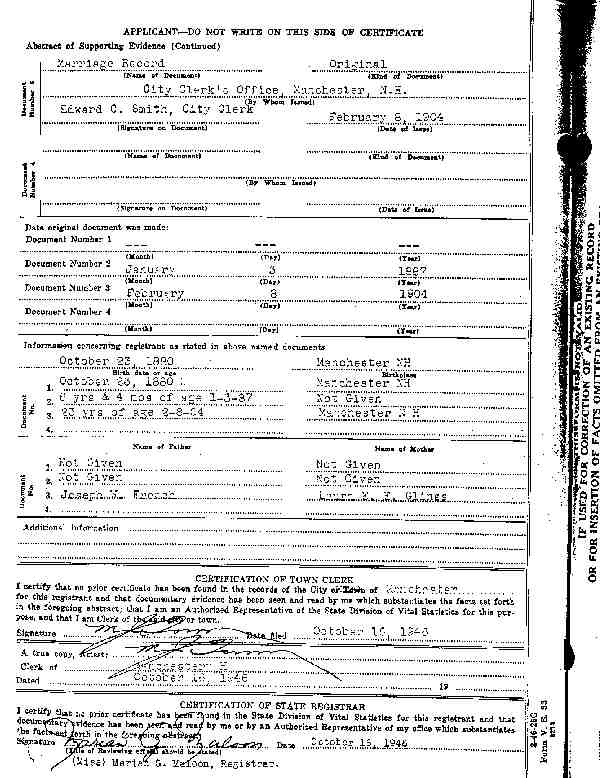 APPLICANT—DO NOT WRITE ON THIS SIDE OF CERTIFICATE
Abstract of Supporting Evidence (Continued)
Marriage Record Original
(Name of Document) (Kind of Document)
City Clerk's Office, Manchester, N.H.
(By Whom Issued)
Edward C. Smith, City Clerk February 8, 1904
(Signature on Document) (Date of Issue)
Document Number 3
(Name of Document) (Kind of Document)
(By Whom Issued)
(Signature on Document) (Date of Issue)
Document Number 4
Date original document was made:
Document Number 1 --- --- ---
(Month) (Day) (Year)
Document Number 2 January 3 1887
(Month) (Day) (Year)
Document Number 3 February 8 1904
(Month) (Day) (Year)
Document Number 4
(Month) (Day) (Year)
Information concerning registrant as stated in above named documents
October 23, 1880 Manchester NH
Birth date or age Birthplace
1. October 23, 1880 Manchester NH
2. 6 yrs & 4 mos of age 1-3-87 Not Given
3. 23 yrs of age 2-8-04 Manchester N H
4.
Document No.
Name of Father Name of Mother
1. Not Given Not Given
2. Not Given Not Given
3. Joseph W. French
4.
Document No.
Additional Information
CERTIFICATION OF TOWN CLERK
I certify that no prior certificate has been found in the records of the City or Town of Manchester
for this registrant and that documentary evidence has been seen and read by me which substantiates the facts set forth
in the foregoing abstract; that I am an Authorized Representative of the State Division of Vital Statistics for this pur-
pose, and that I am Clerk of the said city or town.
Signature Date filed October 16, 1946
A true copy, Attest:
Clerk of Manchester
Dated October 16, 1946 19
CERTIFICATION OF STATE REGISTRAR
I certify that no prior certificate has been found in the State Division of Vital Statistics for this registrant and that
documentary evidence has been seen and read by me or by an Authorized Representative of my office which substantiates
the facts set forth in the foregoing abstract.
Signature Date October 16, 1946
(Title of Reviewing official should be stated)
(Miss) Marian G. Registrar.
Form V. S. 33
IF USED FOR CORRECTION OF AN EXISTING RECORD
OR FOR INSERTION OF FACTS OMITTED FROM AN